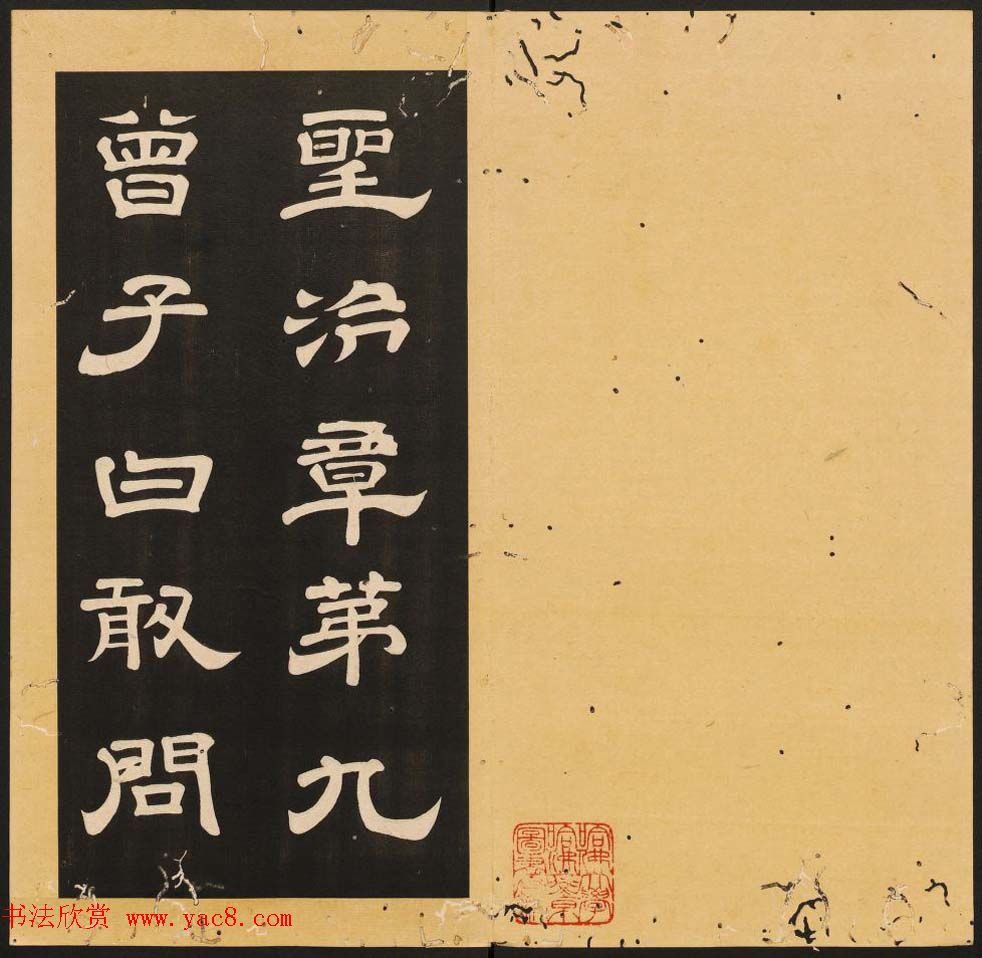 聖治章第九
曾子曰敢問
书法欣赏 www.yac8.com